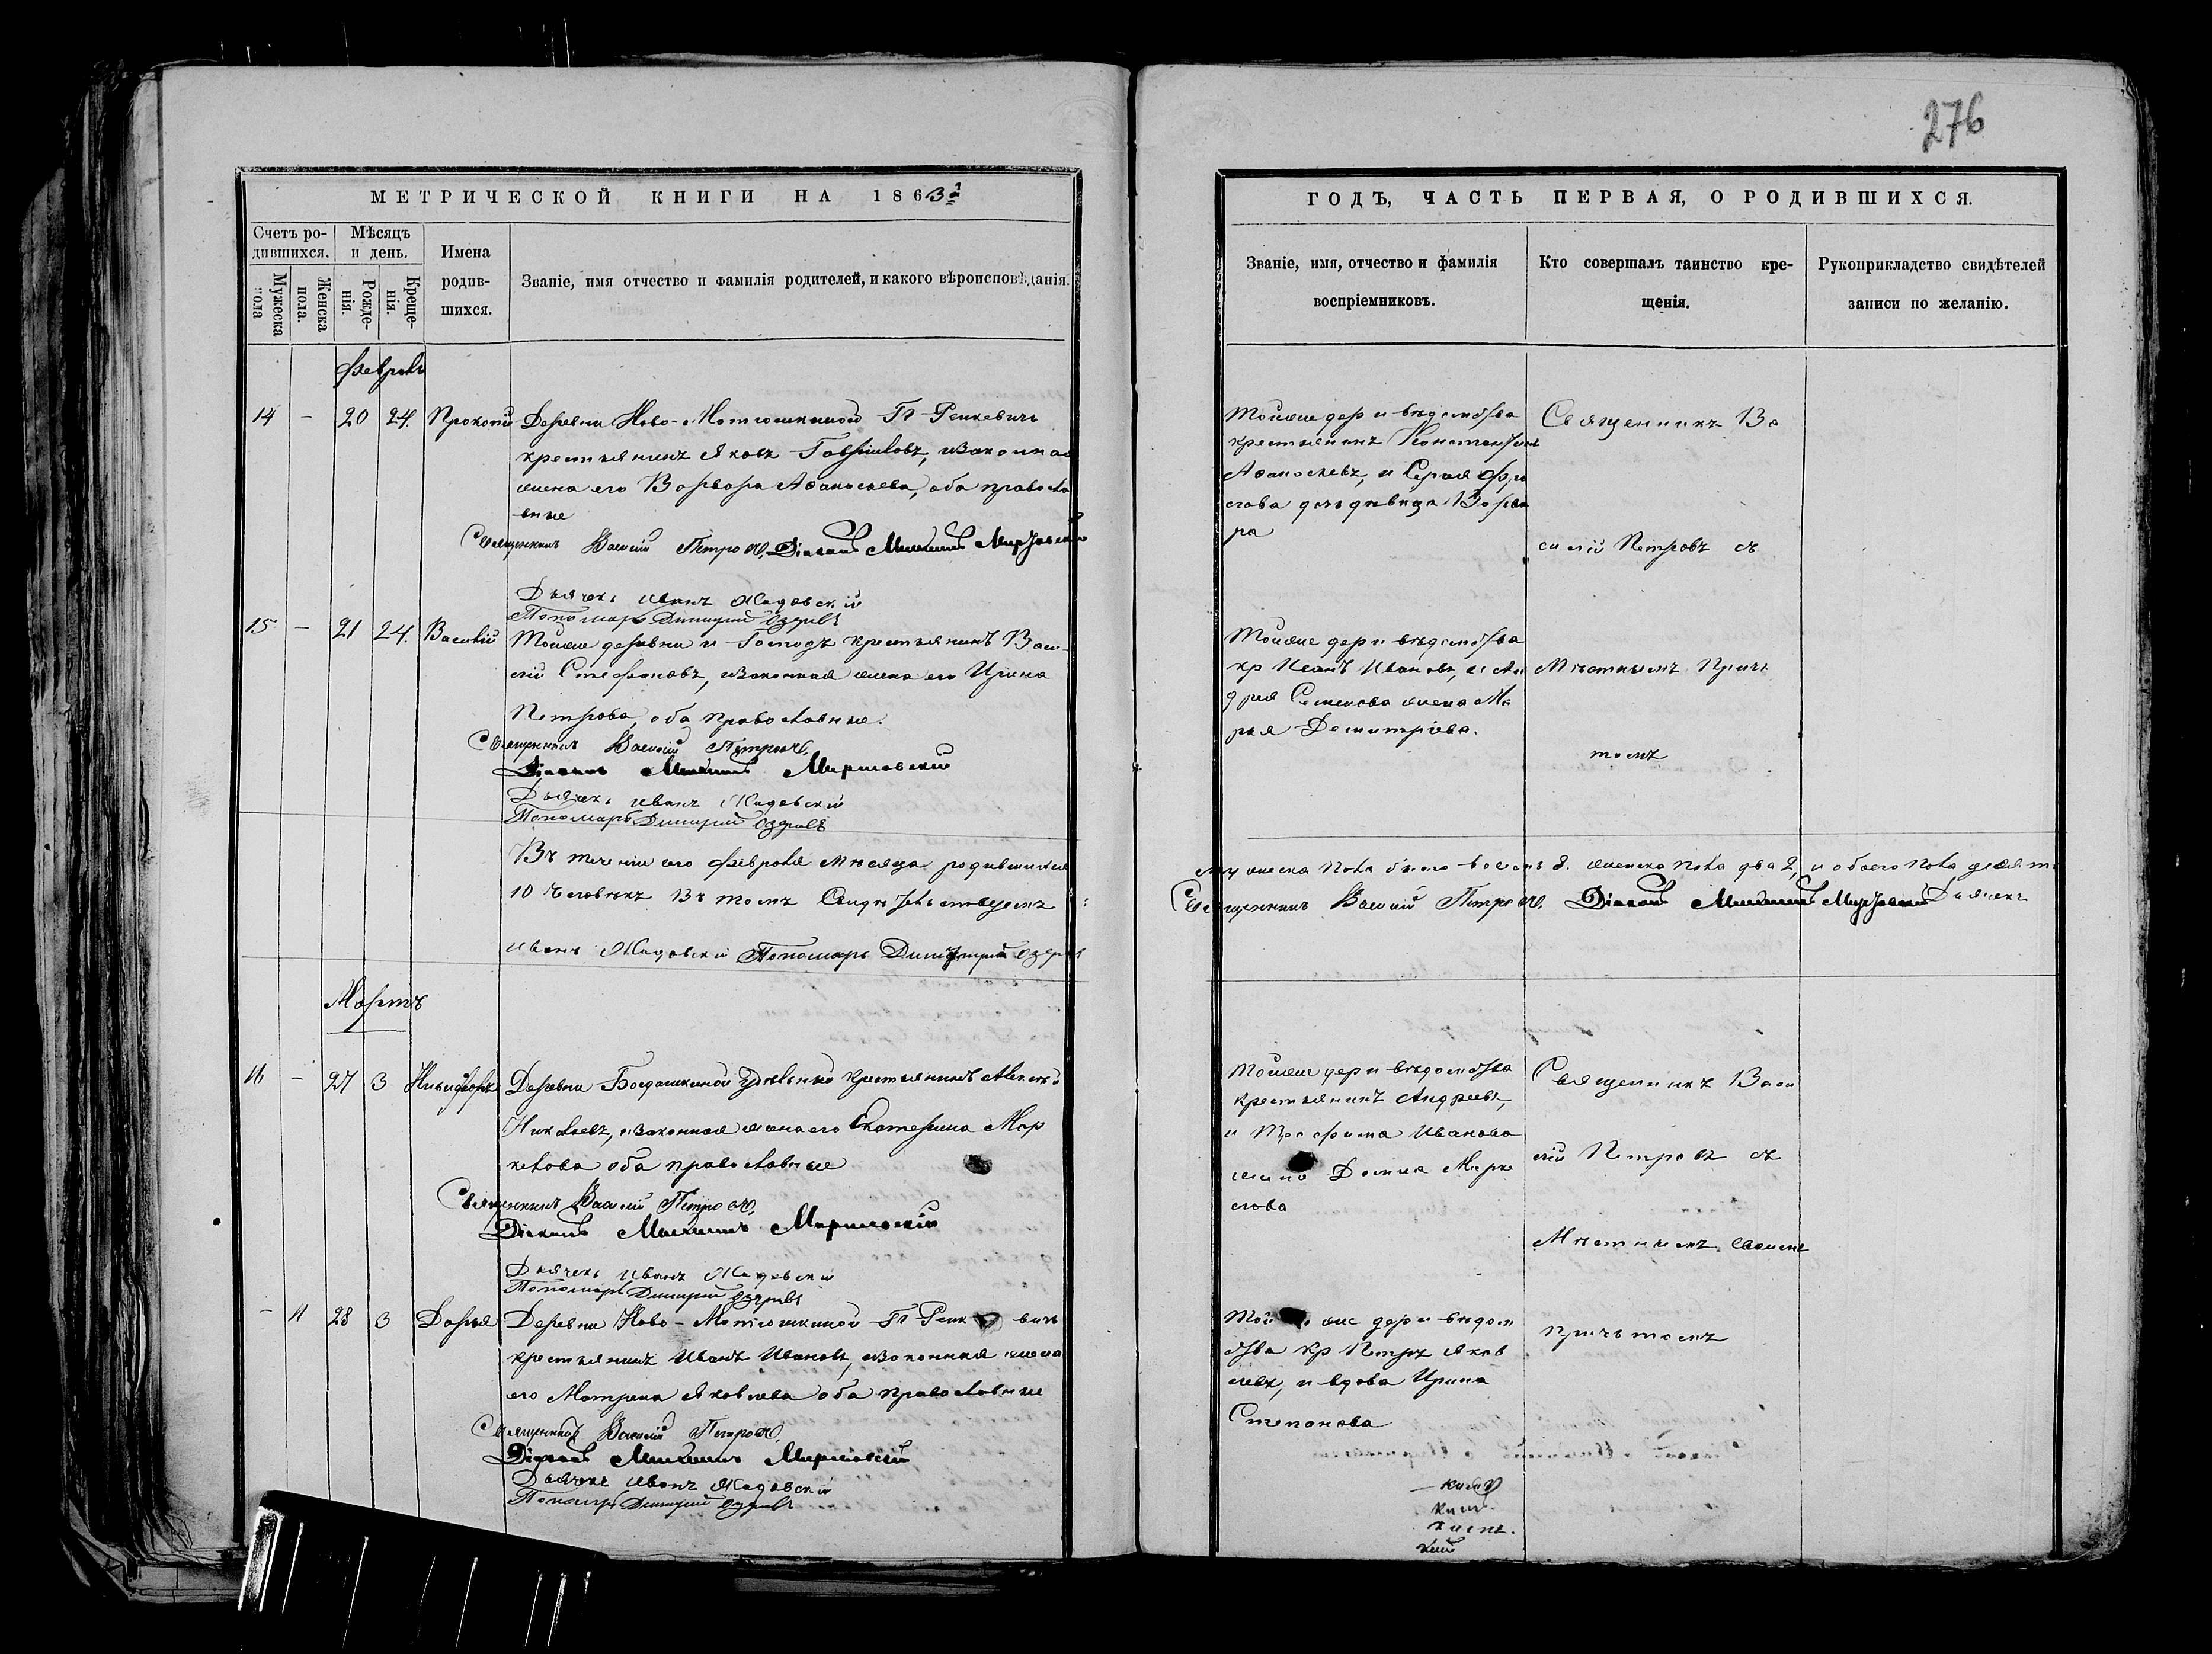 276
МЕТРИЧЕСКОЙ КНИГИ НА 1863й
ГОДЪ, ЧАСТЬ ПЕРВАЯ, О РОДИВШИХСЯ.
Счетъ ро-
дившихся.
Мужеска
пола
Женска
пола.
Мѣсяцъ
и день.
Рожде-
нія.
Креще-
нія.
Имена
родив-
шихся.
Званіе, имя отчество и фамилія родителей, и какого вѣроисповѣданія.
Званіе, имя, отчество и фамилія
воспріемниковъ.
Кто совершалъ таинство кре-
щенія.
Рукоприкладство свидѣтелей
записи по желанію.
Февраль
14 - 20 24. Прокопій Деревни Ново- Гп Ренкевичъ
крестьянинъ Яковъ Гавріиловъ, изаконная
жена его Варвара Аѳанасьева, оба правосла
вные
Священникъ Василій Петровъ. Діаконъ Михаилъ
Дьячекъ Иванъ Жадовскій
Пономарь Димитрій
Тойже дер и вѣдомства
крестьянинъ Константинъ
Аѳанасьевъ, и
дочь дѣвица Варва
ра
Священникъ Ва
силій Петровъ съ
15 - 21 24. Василій Тойже деревни и Господъ крестьянинъ Васи-
лій Стефановъ, изаконная жена его Ирина
Петрова, оба православные.
Священникъ Василій Петровъ.
Діаконъ Михаилъ
Дьячекъ Иванъ Жадовскій
Пономарь Димитрій
Тойже дер и вѣдомства
кр Иванъ Ивановъ, и Ан
дрея Семенова жена Ма
рья Димитріева.
Мѣстнымъ Прич
томъ
Въ теченіи сего Февраля мѣсяца родившихся
мужеска пола было восемь 8. женска пола два 2, и обоего пола десять
10 человѣкъ Въ томъ Свидѣтельствуемъ:
Священникъ Василій Петровъ. Діаконъ Михаилъ Дьячекъ
Иванъ Жадовскій Пономарь Димитрій
Мартъ
16 - 27 3 Никифоръ Деревни Богдашкиной Удѣльной крестьянинъ Алексѣй
Николаевъ, изаконная жена его Екатерина Мар
келова оба православные
Священникъ Василій Петровъ.
Діаконъ Михаилъ
Дьячекъ Иванъ Жадовскій
Пономарь Димитрій
Тойже дер и вѣдомства
крестьянинъ Андреевъ,
и Трофима Иванова
жена Домна Марке
лова
Священникъ Васи
лій Петровъ съ
Мѣстнымъ своимъ
- 11 28 3 Дарья Деревни Ново- Гп Ренкевичъ
крестьянинъ Иванъ Ивановъ, изаконная жена
его Матрена Яковлева оба православные
Священникъ Василій Петровъ.
Діаконъ Михаилъ
Дьячекъ Иванъ Жадовскій
Пономарь Димитрій
Тойже дер и вѣдом
ства кр Петръ Яков
левъ, и вдова Ирина
Степанова
причтомъ